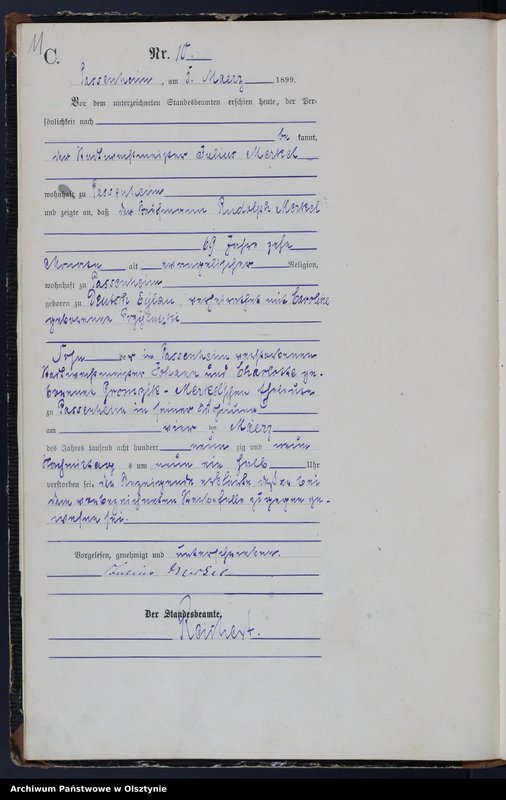 11
C.
Nr. 10.
Passenheim, am 5. Maerz 1899.
Vor dem unterzeichneten Standesbeamten erschien heute, der Per-
sönlichkeit nach
be kannt,
der Stadtwachtmeister Julius Merkel
wohnhaft zu Passenheim
und zeigte an, daß der Kaufmann Rudolph Merkel
69 Jahre zehn
Monate alt evangelischer Religion,
wohnhaft zu Passenheim
geboren zu Deutsch Eylau, verheirathet mit Caroline
geborenen
Sohn der in Passenheim verstorbenen
Stadtwachtmeister Johann und Charlotte ge-
borenen Gromzik - Merkelschen Eheleute
zu Passenheim in seiner Wohnung
am vier ten Maerz
des Jahres tausend acht hundert neun zig und neun
Nachmittag s um neun ein halb Uhr
verstorben sei. der Anzeigende erklärte, daß er bei
dem vorbezeichneten Sterbefalle zugegen ge-
wesen sei.
Vorgelesen, genehmigt und unterschrieben
Julius Merkel
Der Standesbeamte,
Reichert.
Archiwum Państwowe w Olsztynie